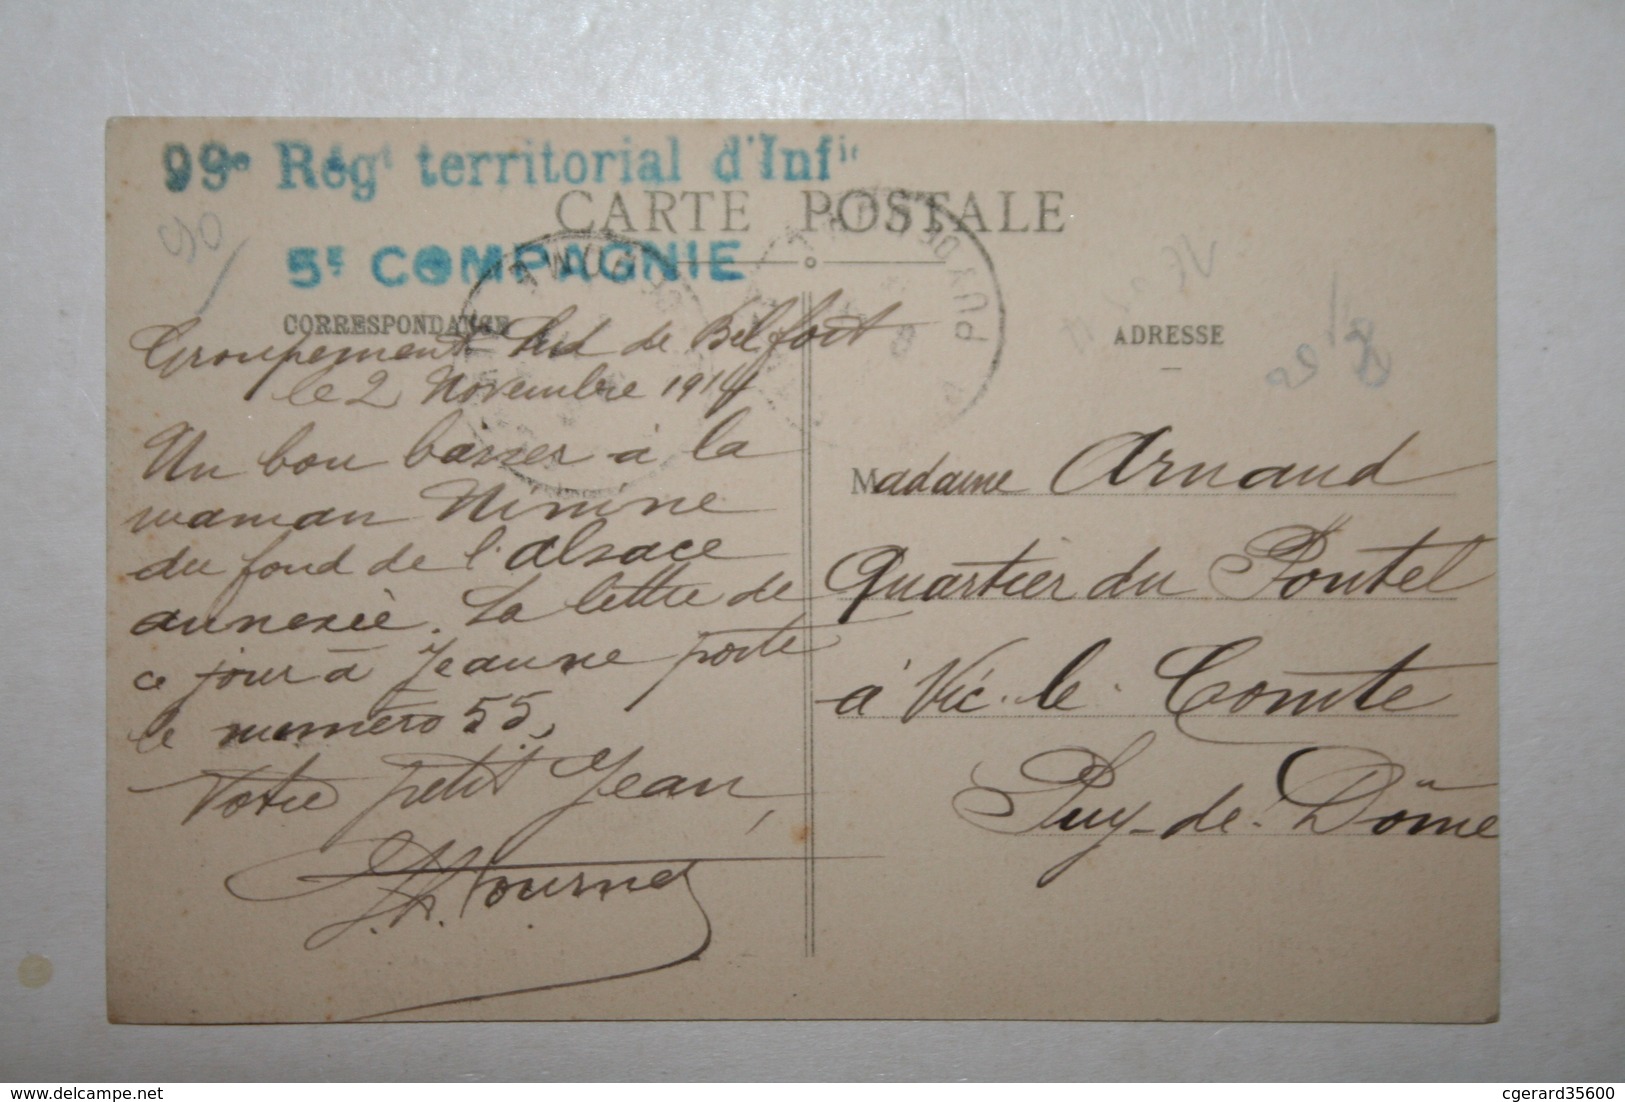 99e Régt territorial d'Infie
CARTE POSTALE
5E COMPAGNIE
90
PUY DE
CORRESPONDANCE
Groupement Sud de Belfort
le 2 Novembre 1914
Un bon baiser à la
maman Ninine
du fond de l'Alsace
annexée. La lettre de
ce jour à Jeanne porte
le numéro 55,
Votre petit Jean,
ADRESSE
Madame Arnaud
Quartier du Pontel
à Vic-le-Comte
Puy-de-Dôme
delcampe.net
cgerard35600